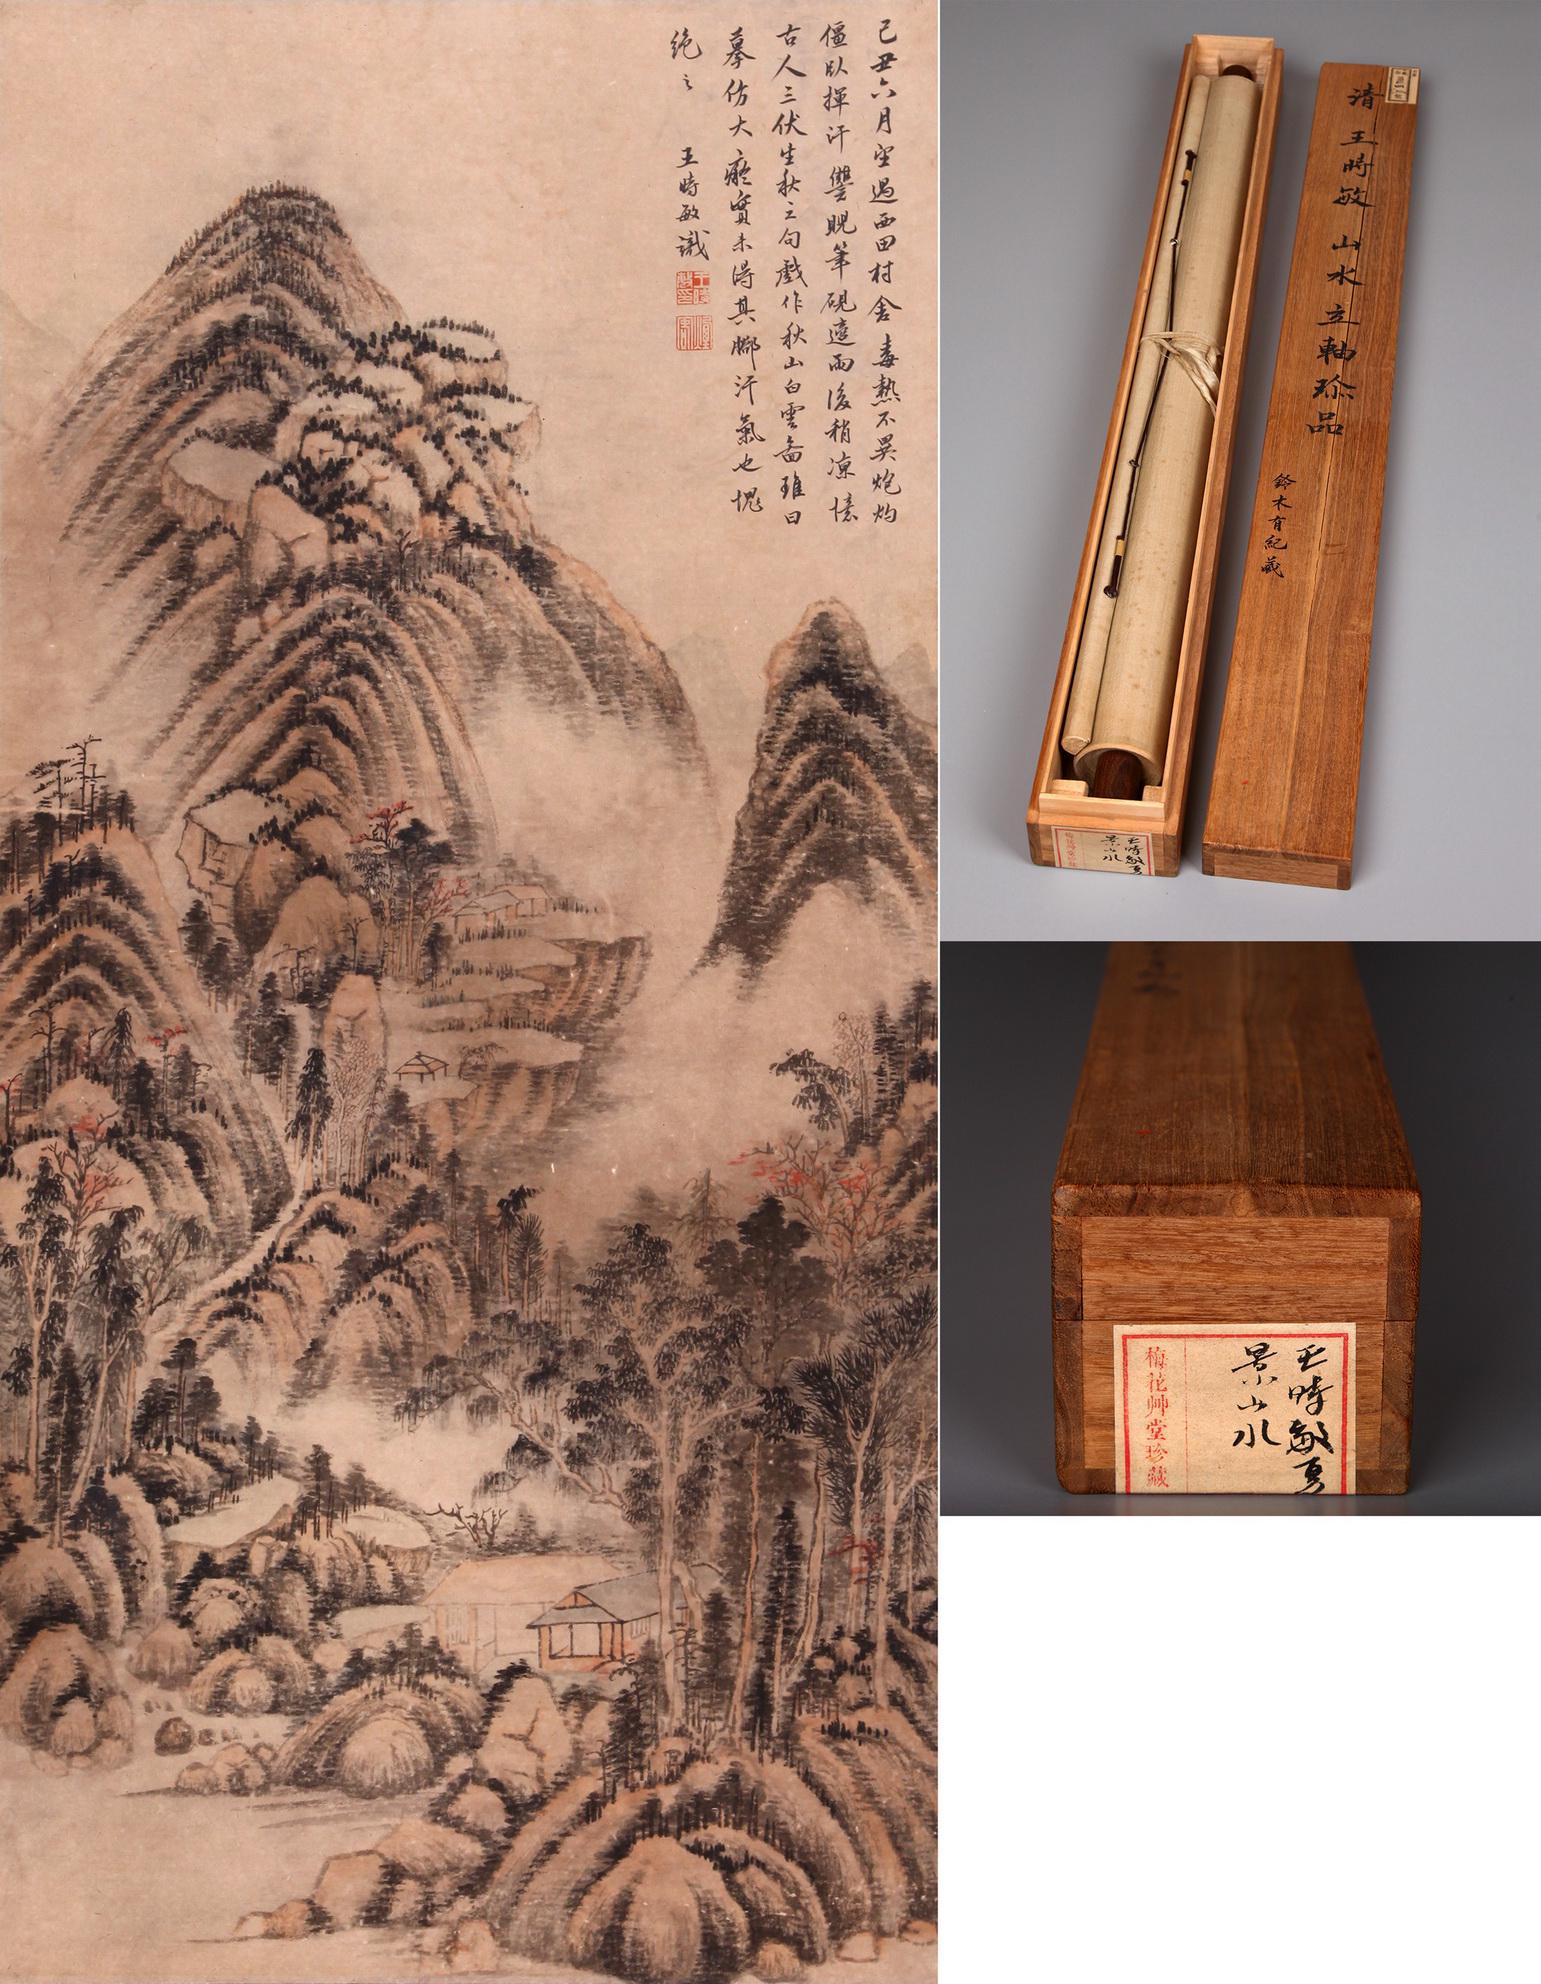 己丑六月望過西田村舍毒熱不異炮灼
僵臥揮汗讐睨筆硯適雨後稍凉憶
古人三伏生秋之句戲作秋山白雲啚雖曰
摹仿大癡實未得其腳汗氣也愧
絶之
王時敏識
清 王時敏 山水立軸珍品
鈴木有紀藏
王時敏
景山水
梅花艸堂珍藏
王時敏
景山水
梅花艸堂珍藏